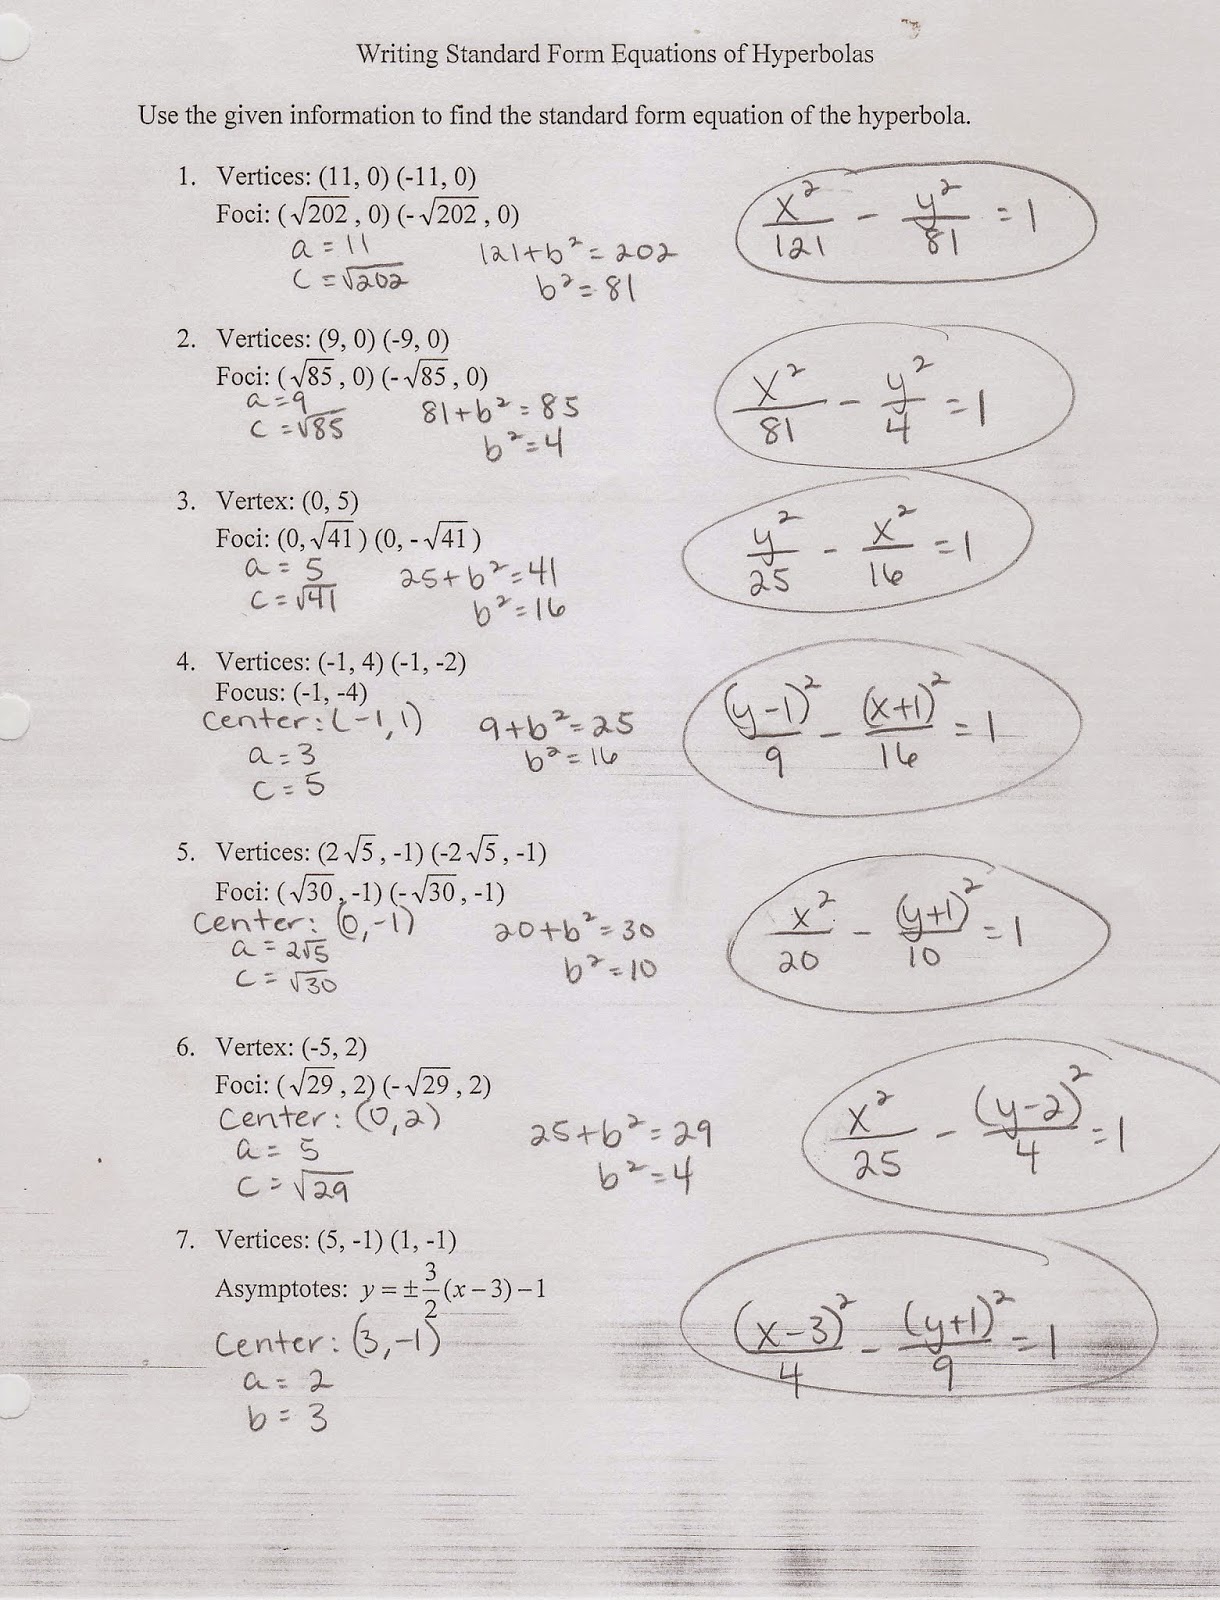 Writing Standard Form Equations of Hyperbolas
Use the given information to find the standard form equation of the hyperbola.
1. Vertices: (11, 0) (-11, 0)
Foci: (√202 , 0) (-√202 , 0)
a = 11
c = √202
121+b²=202
b²=81
x²/121 - y²/81 = 1
2. Vertices: (9, 0) (-9, 0)
Foci: (√85 , 0) (-√85 , 0)
a=9
c=√85
81+b²=85
b²=4
x²/81 - y²/4 = 1
3. Vertex: (0, 5)
Foci: (0, √41) (0, -√41)
a = 5
c=√41
25+b²=41
b²=16
y²/25 - x²/16 = 1
4. Vertices: (-1, 4) (-1, -2)
Focus: (-1, -4)
center: (-1,1)
a=3
c=5
9+b²=25
b²=16
(y-1)²/9 - (x+1)²/16 = 1
5. Vertices: (2√5 , -1) (-2√5 , -1)
Foci: (√30 , -1) (-√30 , -1)
center: (0,-1)
a=2√5
c=√30
20+b²=30
b²=10
x²/20 - (y+1)²/10 = 1
6. Vertex: (-5, 2)
Foci: (√29 , 2) (-√29 , 2)
center: (0,2)
a= 5
c=√29
25+b²=29
b²=4
x²/25 - (y-2)²/4 = 1
7. Vertices: (5, -1) (1, -1)
Asymptotes: y = ± 3/2 (x – 3) – 1
center: (3,-1)
a = 2
b = 3
(x-3)²/4 - (y+1)²/9 = 1